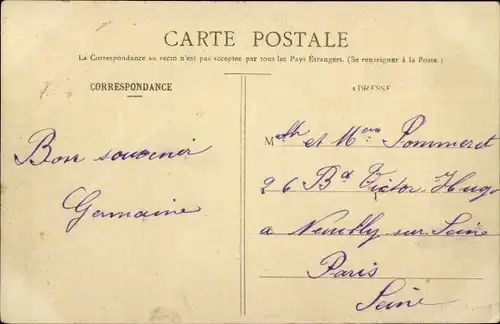 CARTE POSTALE
La Correspondance au recto n'est pas acceptée par tous les Pays Étrangers. (Se renseigner à la Poste.)
CORRESPONDANCE
ADRESSE
Bon souvenir
Germaine
et Pommeret
26 Bd Victor-Hugo
a Neuilly sur Seine
Paris
Seine